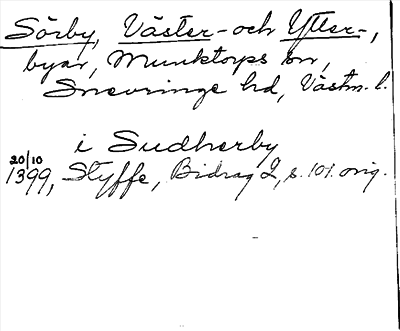 Sörby, Väster- och Ytter-,
byar, Munktorps sn,
Snevringe hd, Västm. l.
i Sudherby
20/10
1399, Styffe, Bidrag 2, s. 101. orig.